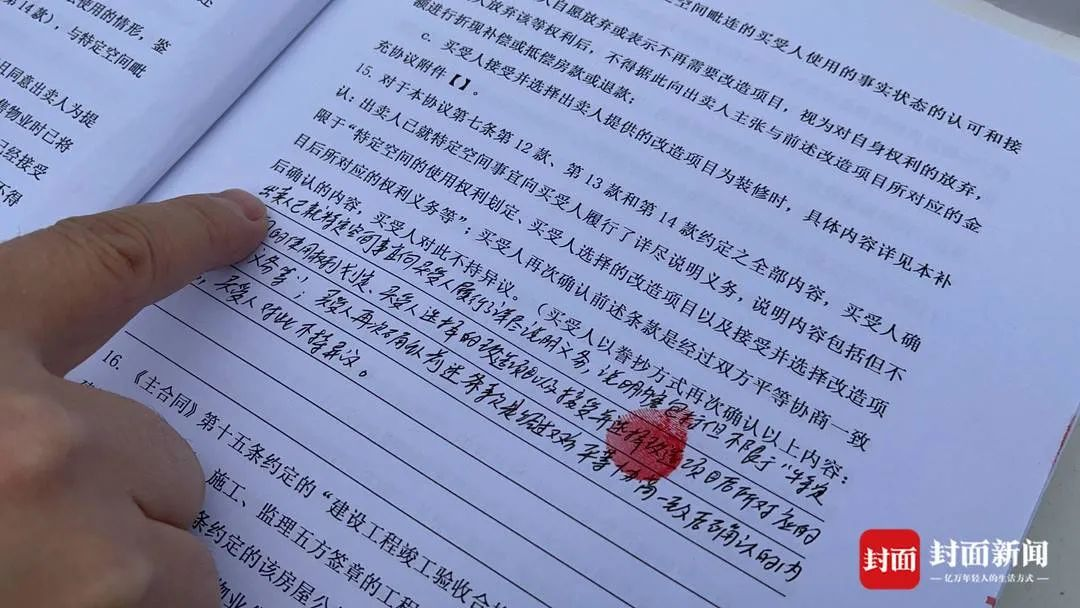 第14款），与特定空间毗
使用的情形，鉴
且同意出卖人为提
售物业时已将
已经接受
不得
空间毗连的买受人使用的事实状态的认可和接
人自愿放弃或表示不再需要改造项目，视为对自身权利的放弃，
人放弃该等权利后，不得据此向出卖人主张与前述改造项目所对应的金
额进行折现补偿或抵偿房款或退款；
c. 买受人接受并选择出卖人提供的改造项目为装修时，具体内容详见本补
充协议附件【】。
15. 对于本协议第七条第12款、第13款和第14款约定之全部内容，买受人确
认：出卖人已就特定空间事宜向买受人履行了详尽说明义务，说明内容包括但不
限于“特定空间的使用权利划定、买受人选择的改造项目以及接受并选择改造项
目后所对应的权利义务等”；买受人再次确认前述条款是经过双方平等协商一致
后确认的内容，买受人对此不持异议。（买受人以誊抄方式再次确认以上内容：
出卖人已就特定空间事宜向买受人履行了详尽说明义务，说明内容包括但不限于“特定
空间的使用权利划定、买受人选择的改造项目以及接受并选择改造项目后所对应的
义务等”；买受人再次确认前述条款是经过双方平等协商一致后确认的内
，买受人对此不持异议。
16. 《主合同》第十五条约定的“建设工程竣工验收合
施工、监理五方签章的工程
条约定的该房屋公
封面
封面新闻
亿万年轻人的生活方式